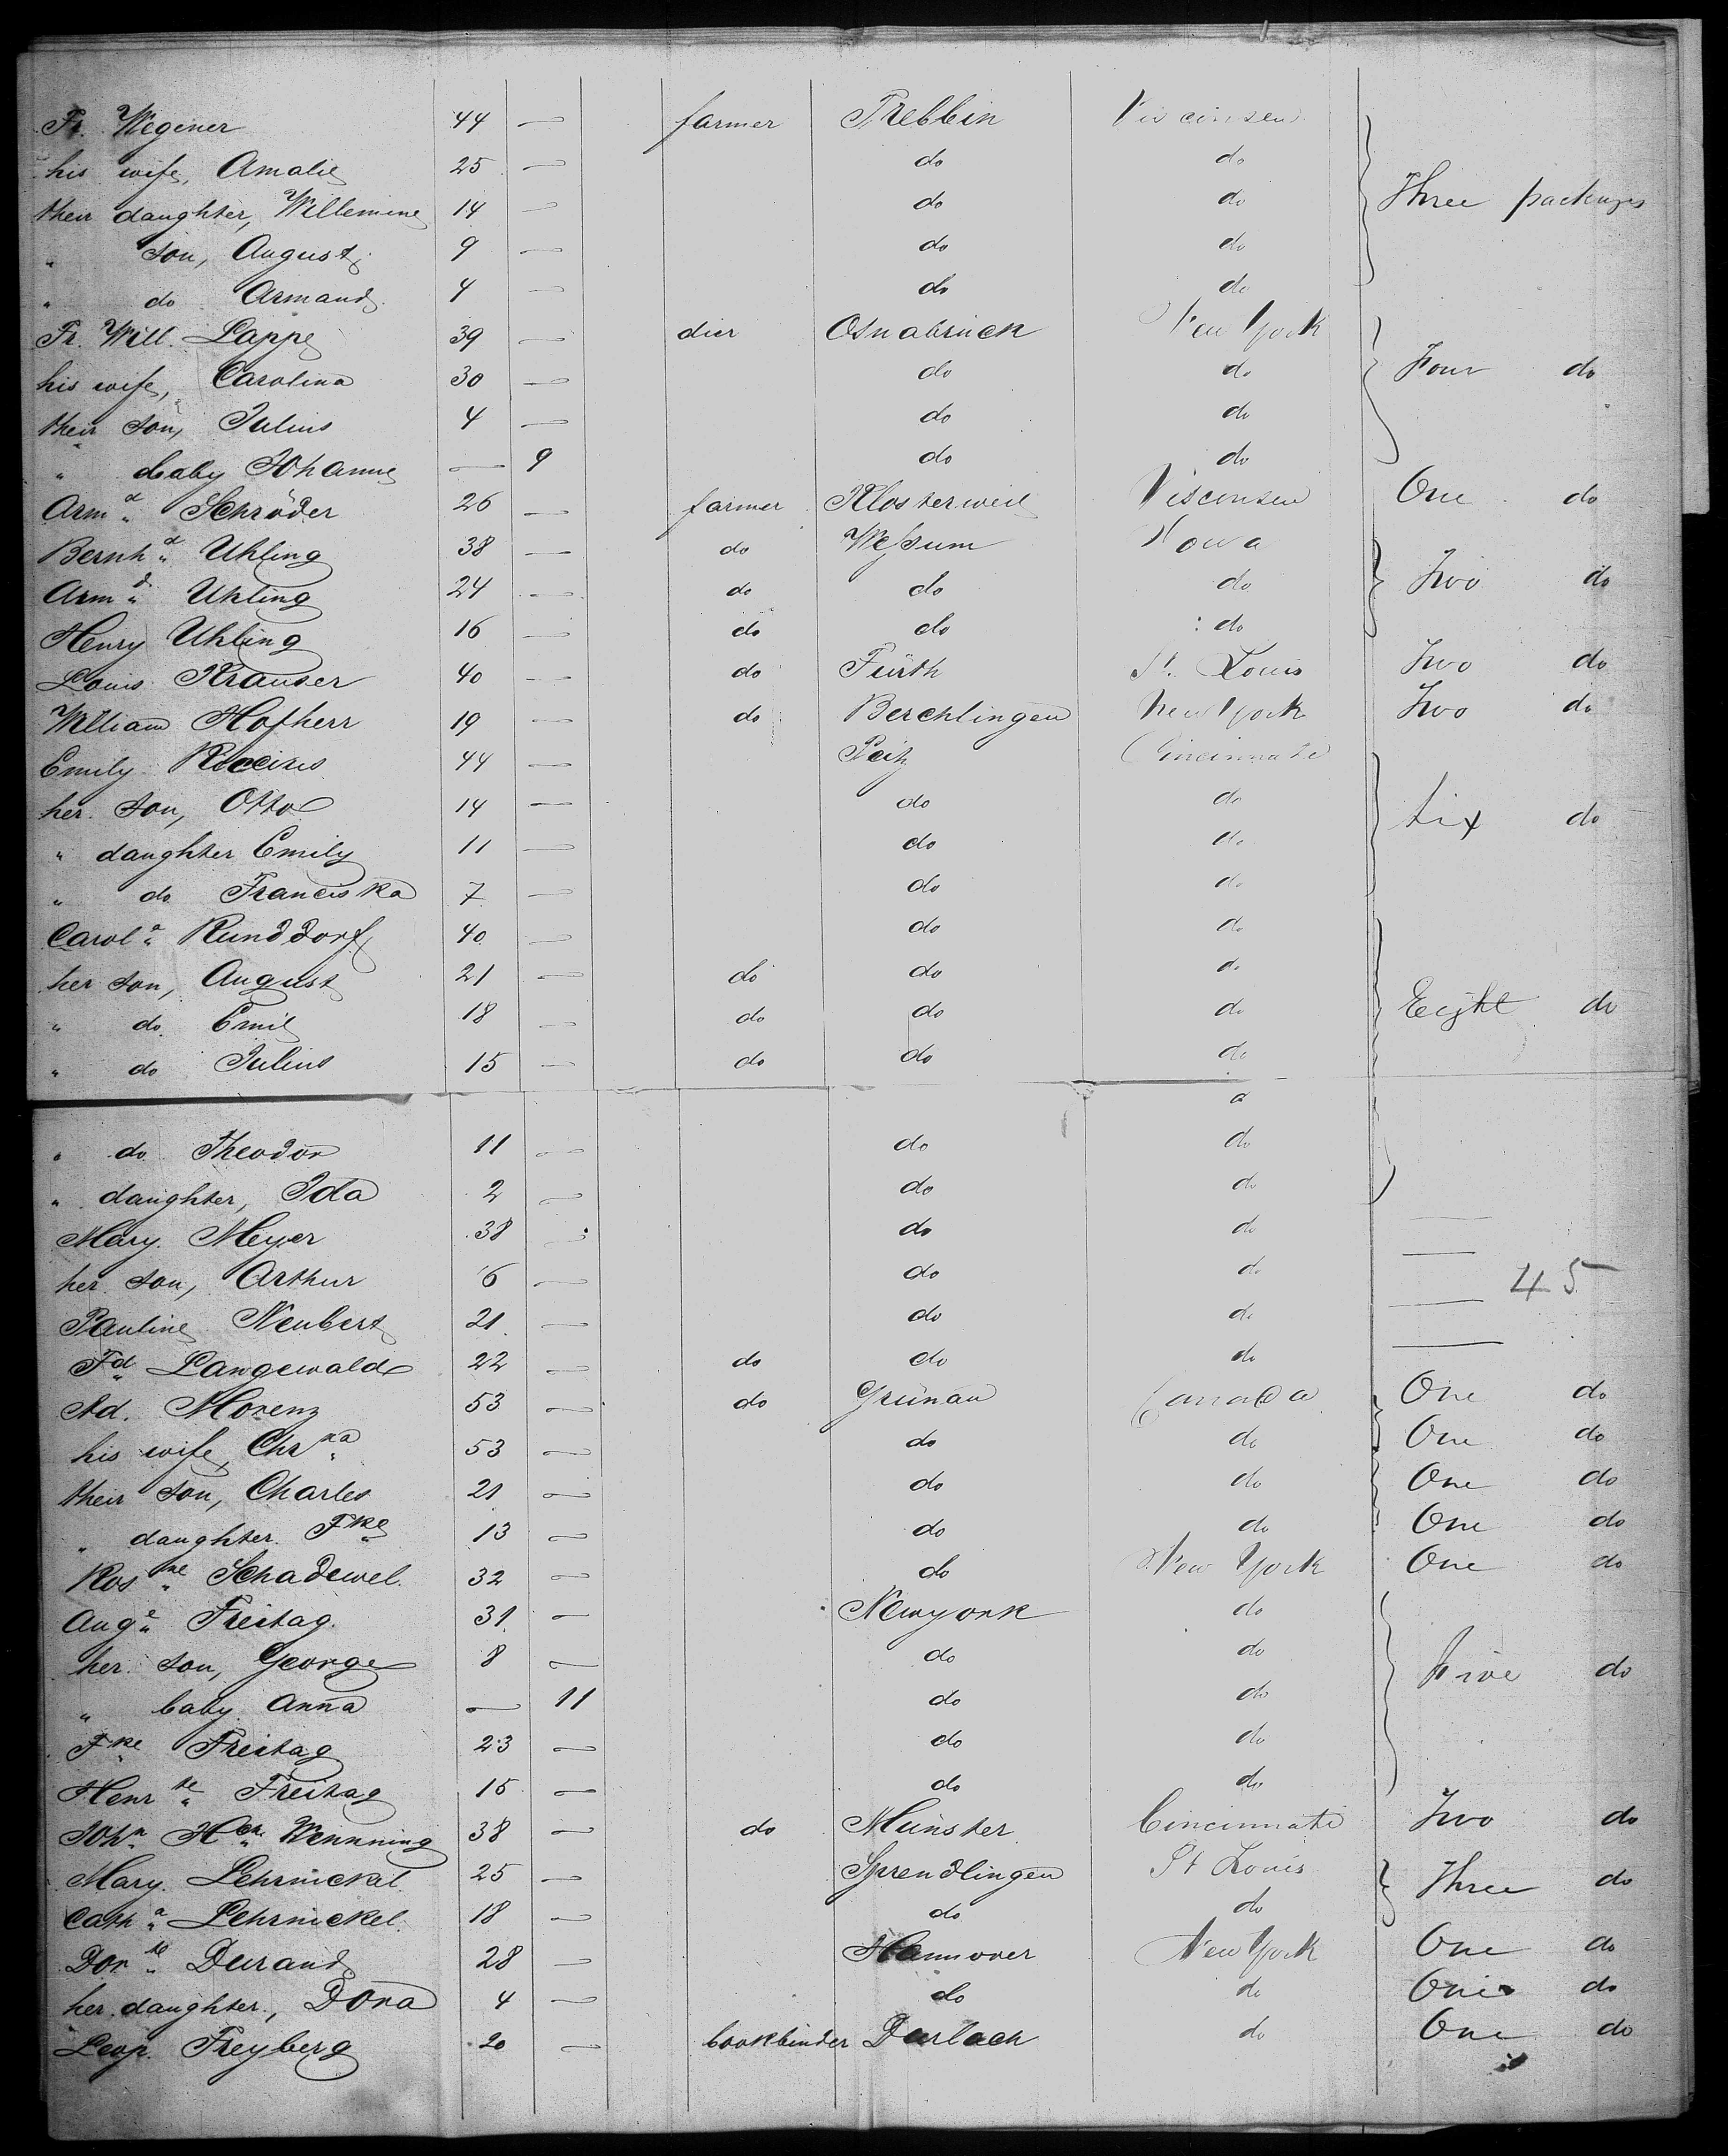 Fr. Wegener 44 — farmer Trebbin Visconsen
his wife, Amalie 25 — do do
their daughter, Willemine 14 — do do Three packages
" son, August 9 — do do
" do Armand 4 — do do
Fr. Will. Lappe 39 — dier Osnabrück New York
his wife, Carolina 30 — do do Four do
their son, Julius 4 — do do
" baby Johanne — 9 do do
Arm d Schröder 26 — farmer Klosterweil Visconsen One do
Bernh d Uhling 38 — do Weſsum Iowa
Arm d Uhling 24 — do do do Two do
Henry Uhling 16 — do do do
Louis Krauser 40 — do Fürth St. Louis Two do
William Hofherr 19 — do Berchlingen New York Two do
Emily 44 — Peitz Cincinnati
her son, Otto 14 — do do Six do
" daughter Emily 11 — do do
" do Franciska 7 — do do
Carol a Runddorf 40 — do do
her son, August 21 — do do do
" do Emil 18 — do do do Eight do
" do Julius 15 — do do do
" do Theodor 11 — do do
" daughter, Ida 2 — do do
Mary Meyer 38 — do do —
her son, Arthur 6 — do do — 45
Pauline Neubert 21 — do do —
Fd Langewald 22 — do do do —
Ad. Morenz 53 — do Grünau Canada One do
his wife, Chr na 53 — do do One do
their son, Charles 21 — do do One do
" daughter Fke 13 — do do One do
Ros ne Schadewel 32 — do New York One do
Aug e Freitag 31 — Newyork do
her son, George 8 — do do Five do
" baby Anna — 11 do do
Fke Freitag 23 — do do
Henr te Freitag 15 — do do
Joh n Hch Wennning 38 — do Münster Cincinnati Two do
Mary Lehrnickel 25 — Sprendlingen St Louis Three do
Cath a Lehrnickel 18 — do do
Dor te Durand 28 — Hannover New York One do
her daughter, Dora 4 — do do One do
Leop. Freyberg 20 — bookbinder Durlach do One do